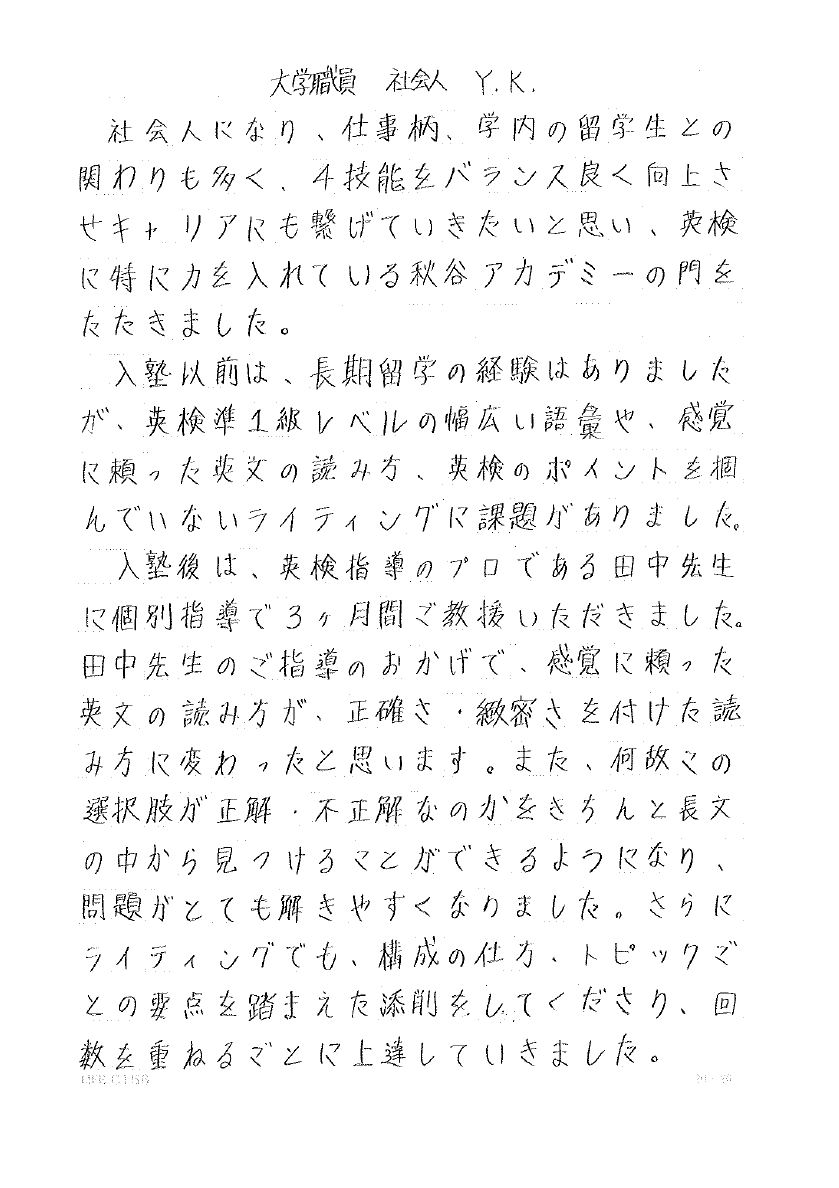 大学職員 社会人 Y.K.
社会人になり、仕事柄、学内の留学生との
関わりも多く、4技能をバランス良く向上さ
せキャリアにも繋げていきたいと思い、英検
に特に力を入れている秋谷アカデミーの門を
たたきました。
入塾以前は、長期留学の経験はありました
が、英検準1級レベルの幅広い語彙や、感覚
に頼った英文の読み方、英検のポイントを掴
んでいないライティングに課題がありました。
入塾後は、英検指導のプロである田中先生
に個別指導で3ヶ月間ご教授いただきました。
田中先生のご指導のおかげで、感覚に頼った
英文の読み方が、正確さ・緻密さを付けた読
み方に変わったと思います。また、何故この
選択肢が正解・不正解なのかをきちんと長文
の中から見つけることができるようになり、
問題がとても解きやすくなりました。さらに
ライティングでも、構成の仕方、トピックご
との要点を踏まえた添削をしてくださり、回
数を重ねるごとに上達していきました。